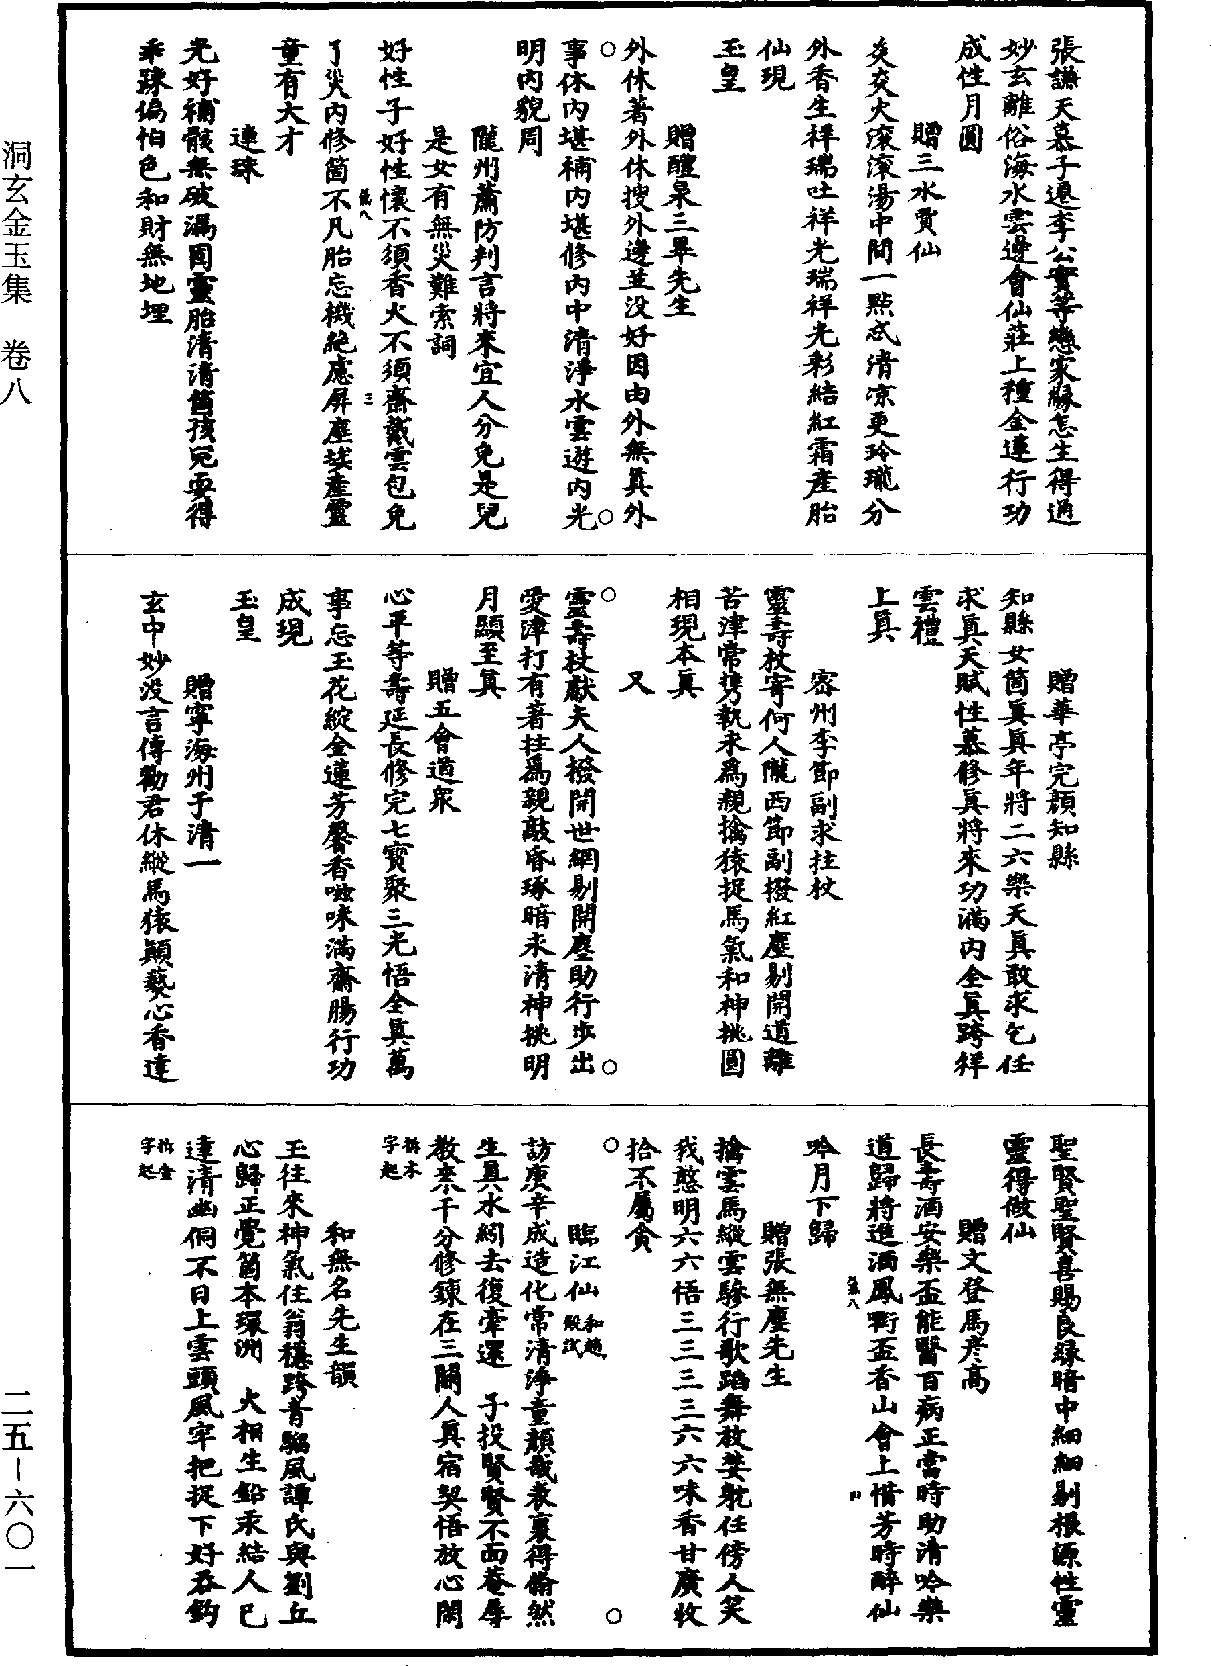 張謙天慕子遷李公實等戀家緣怎生得過
妙玄離俗海水雲邊會仙莊上種金蓮行功
成性月圓
贈三水賈仙
炎炎火滾滾湯中間一點忒清凉更玲瓏分
外香生祥瑞吐祥光瑞祥光彩結紅霜產胎
仙現
玉皇
贈醴泉三畢先生
外休著外休搜外邊並没好因由外無真外
事休内堪補内堪修内中清淨水雲遊内光
明内貌周
隴州蕭防判言將來宜人分免是兒
是女有無災難索詞
好性子好性懷不須香火不須齋戴雲包免
了災内修箇不凡胎忘機絶慮屏塵埃產靈
童有大才
連珠
光好補骸無破漏固靈胎清清箇孩兒要得
乖踈偏怕色和財無地埋
贈華亭完顔知縣
知縣女箇真真年將二六樂天真敢求乞任
求真天賦性慕修真將來功滿内全真跨祥
雲禮
上真
密州李節副求拄杖
靈壽杖寄何人隴西節副撥紅塵剔開道離
苦津常携執永爲親擒猿捉馬氣和神挑圓
相現本真
又
靈壽杖獻夫人撥開世網剔開塵助行步出
愛津打有著拄爲親敲昏琢暗永清神挑明
月顯至真
贈五會道衆
心平等壽延長修完七寳聚三光悟全真萬
事忘玉花綻金蓮芳馨香噉味滿齋腸行功
成現
玉皇
贈寧海州于清一
玄中妙没言傳勸君休縱馬猿顛爇心香達
聖賢聖賢喜賜良緣暗中細細剔根源性靈
靈得做仙
贈文登馬彦高
長壽酒安樂盃能醫百病正當時助清吟樂
道歸將進酒鳳啣盃香山會上惜芳時醉仙
吟月下歸
贈張無塵先生
搶雲馬縱雲驂行歌蹈舞放婪躭任傍人笑
我憨明六六悟三三三三六六味香甘廣收
拾不屬貪
臨江仙 和趙殿試
訪庚辛成造化常清淨童顔哉表裏得翛然
生真水綱去復牽還 予投賢賢不面菴辱
教來千分修鍊在三關人真宿契悟放心閑
拆木字起
和無名先生韻
玉往來神氣住翁穩跨青騧風譚氏與劉丘
心歸正覺箇本環洲 火相生鉛汞結人巳
達清幽侗不日上雲頭風牢把捉下好吞鈎
拆金字起
洞玄金玉集 卷八
二五-六〇一